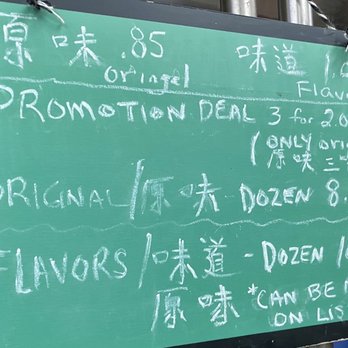 原味 .85 味道 1.
oringel Flavo
PROMOTION DEAL 3 for 2.0
(ONLY ori
原味 三
ORIGNAL/原味 - DOZEN 8.
FLAVORS/味道 - DOZEN 1
原味 *CAN BE
ON LIS